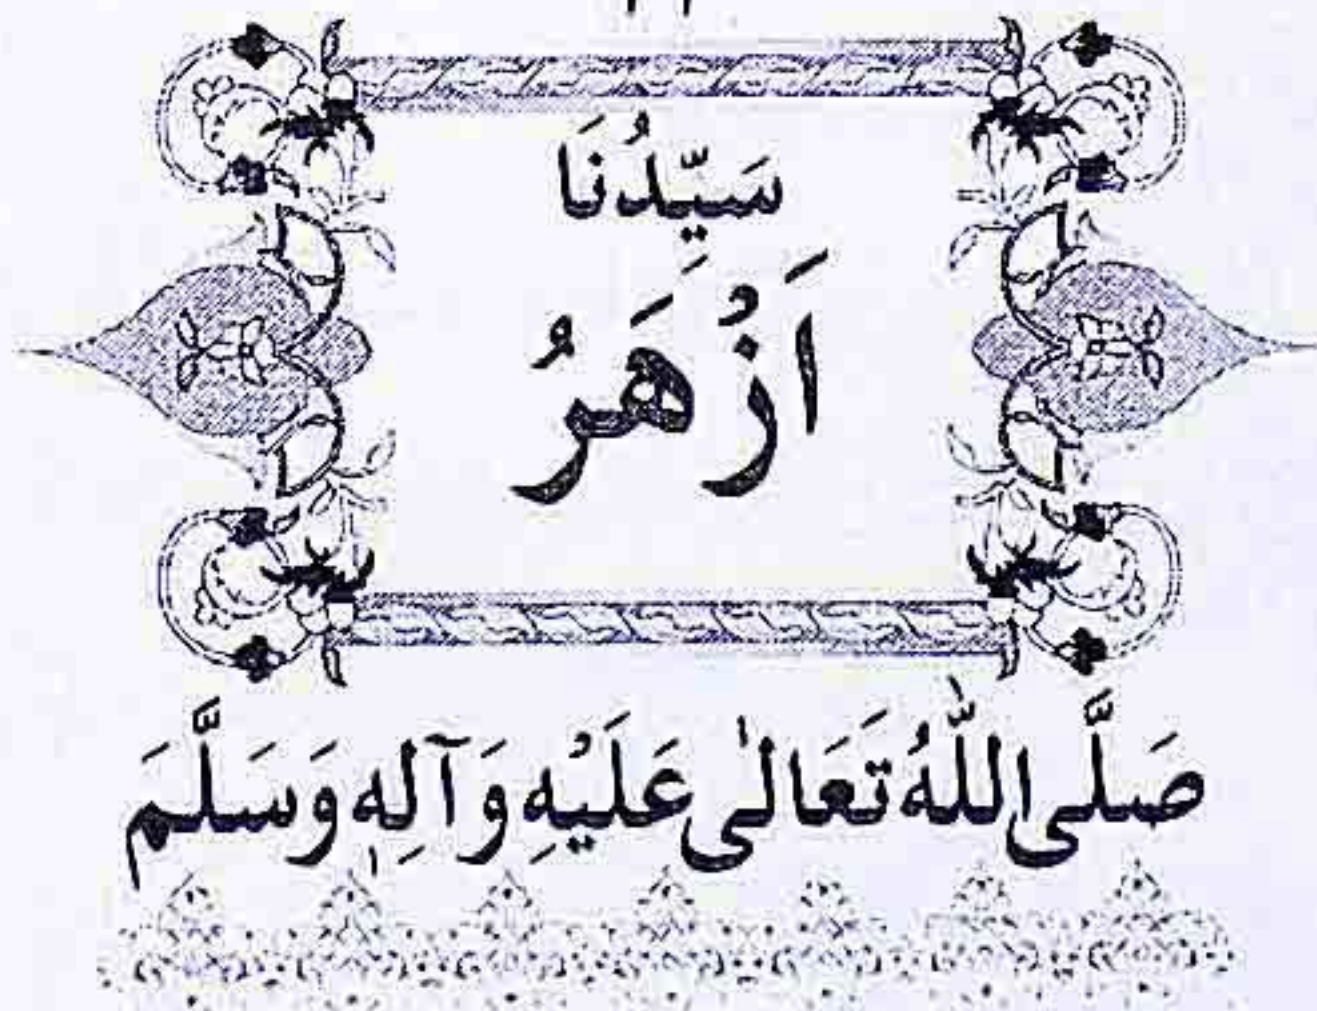 سَيِّدُنَا
اَزْهَرُ
صَلَّى اللّٰهُ تَعَالٰى عَلَيْهِ وَآلِهٖ وَسَلَّمَ